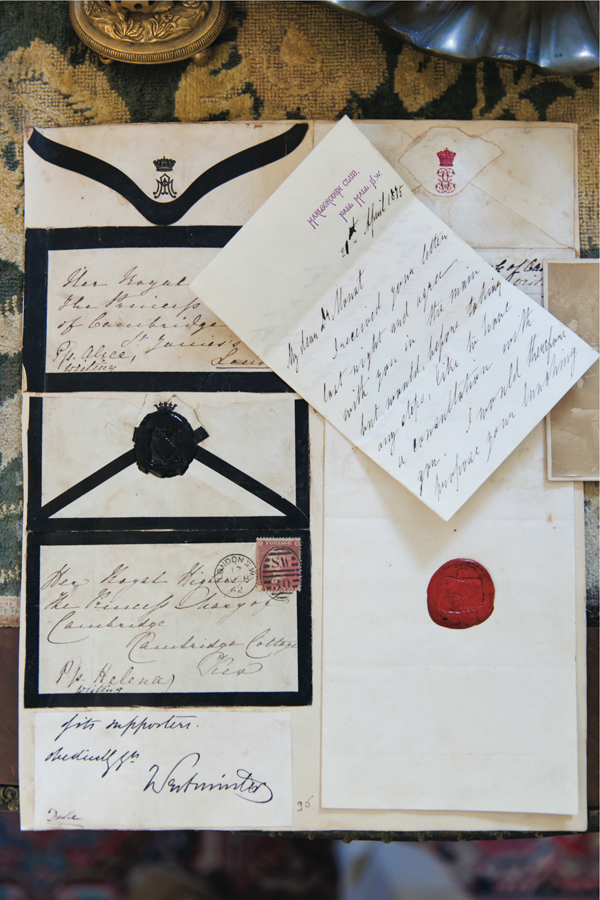 Her Royal
The Princess
of Cambridge
St James's
P/ss Alice,
writing
MARLBOROUGH CLUB.
PALL MALL. S.W.
April 1875
My dear
I received your letter
last night and agree
with you in the main
but would, before taking
any steps, like to have
a consultation with
you. I would therefore
propose your lunching
LONDON S.W
62
POSTAGE
SW
30
Her Royal
The Princess Mary of
Cambridge
Cambridge Cottage
Kew
P/ss Helena,
writing
of its supporters.
Westminster
Duke
96